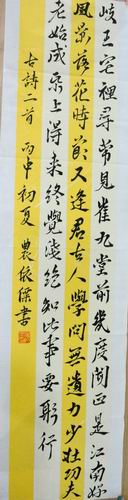 岐王宅裡尋常見崔九堂前幾度聞正是江南好
風景落花時節又逢君古人學問無遺力少壯功夫
老始成帋上得來終覺淺絕知此事要躬行
古詩二首 丙申初夏 農依傑書